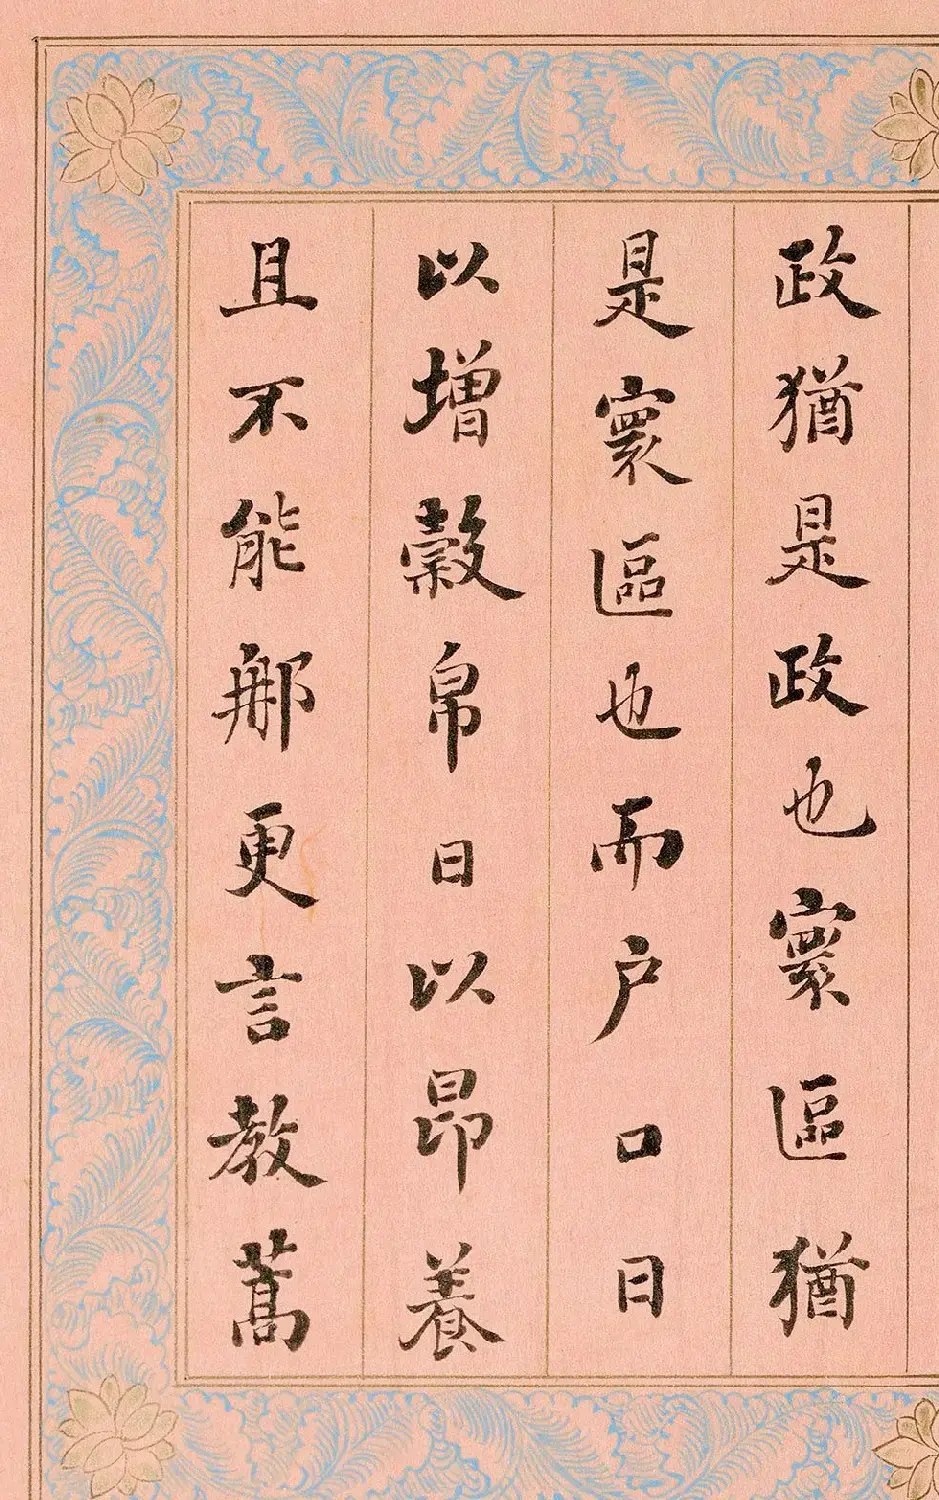 政猶是政也寰區猶
是寰區也而戶口日
以增穀帛日以昂養
且不能那更言教蒿